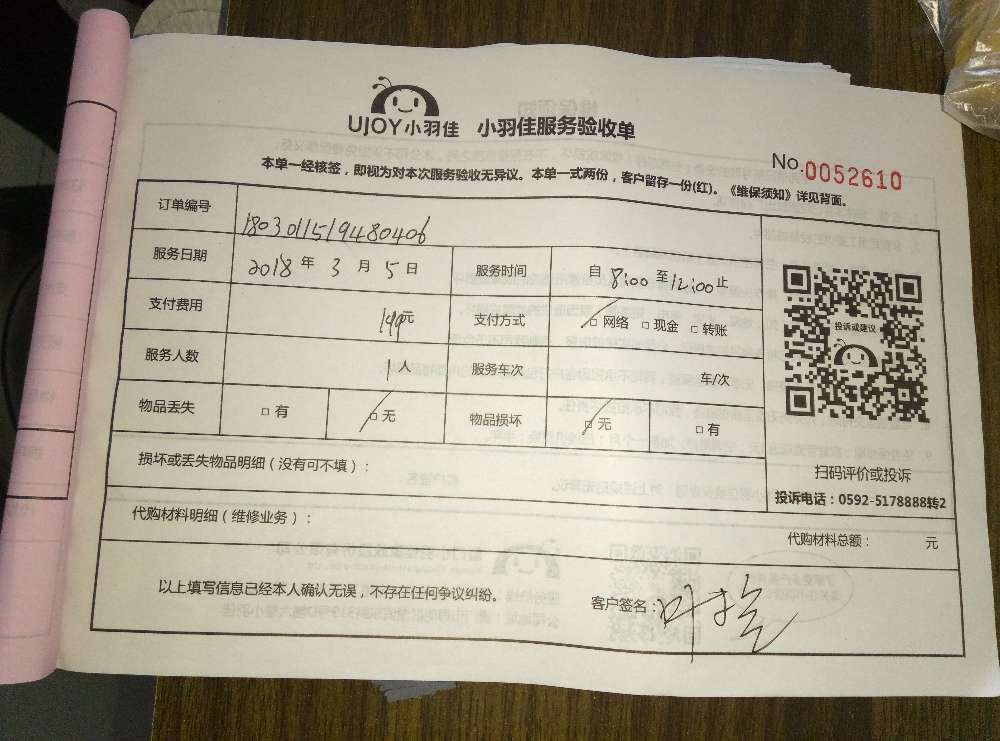 UJOY小羽佳 小羽佳服务验收单
No.0052610
本单一经核签，即视为对本次服务验收无异议。本单一式两份，客户留存一份(红)。《维保须知》详见背面。
订单编号 1803011519480406
服务日期 2018年3月5日 服务时间 自8:00至12:00止
支付费用 149元 支付方式 □网络 □现金 □转账
投诉或建议
服务人数 1人 服务车次 车/次
物品丢失 □有 □无 物品损坏 □无 □有
损坏或丢失物品明细（没有可不填）：
扫码评价或投诉
投诉电话：0592-5178888转2
代购材料明细（维修业务）：
代购材料总额： 元
以上填写信息已经本人确认无误，不存在任何争议纠纷。
客户签名：